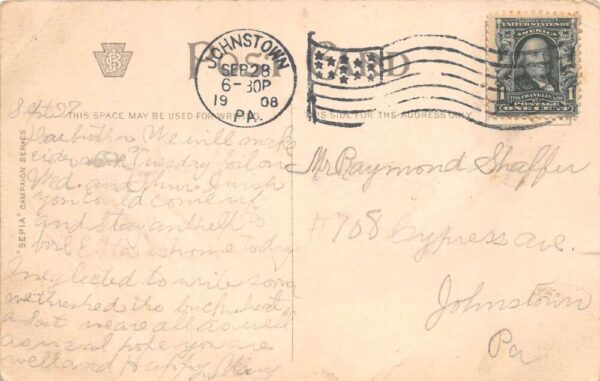 POST CARD
JOHNSTOWN
SEP 28
6-30P
1908
PA.
SERIES 1902
UNITED STATES OF AMERICA
1 FRANKLIN 1
POSTAGE
ONE CENT
THIS SPACE MAY BE USED FOR WRITING.
THIS SIDE FOR THE ADDRESS ONLY
"SEPIA" CAMPAIGN SERIES
Sept 27
Dear brother We will make
cider Tuesday boil on
Wed. and Thur. I wish
you could come up
and stay and help
boil Etta is home today
I neglected to write soon
we threshed the buckwheat
a but we are all as well
as usual hope you are
well and Happy Mary
Mr Raymond Shaffer
#708 Cypress ave.
Johnstown
Pa